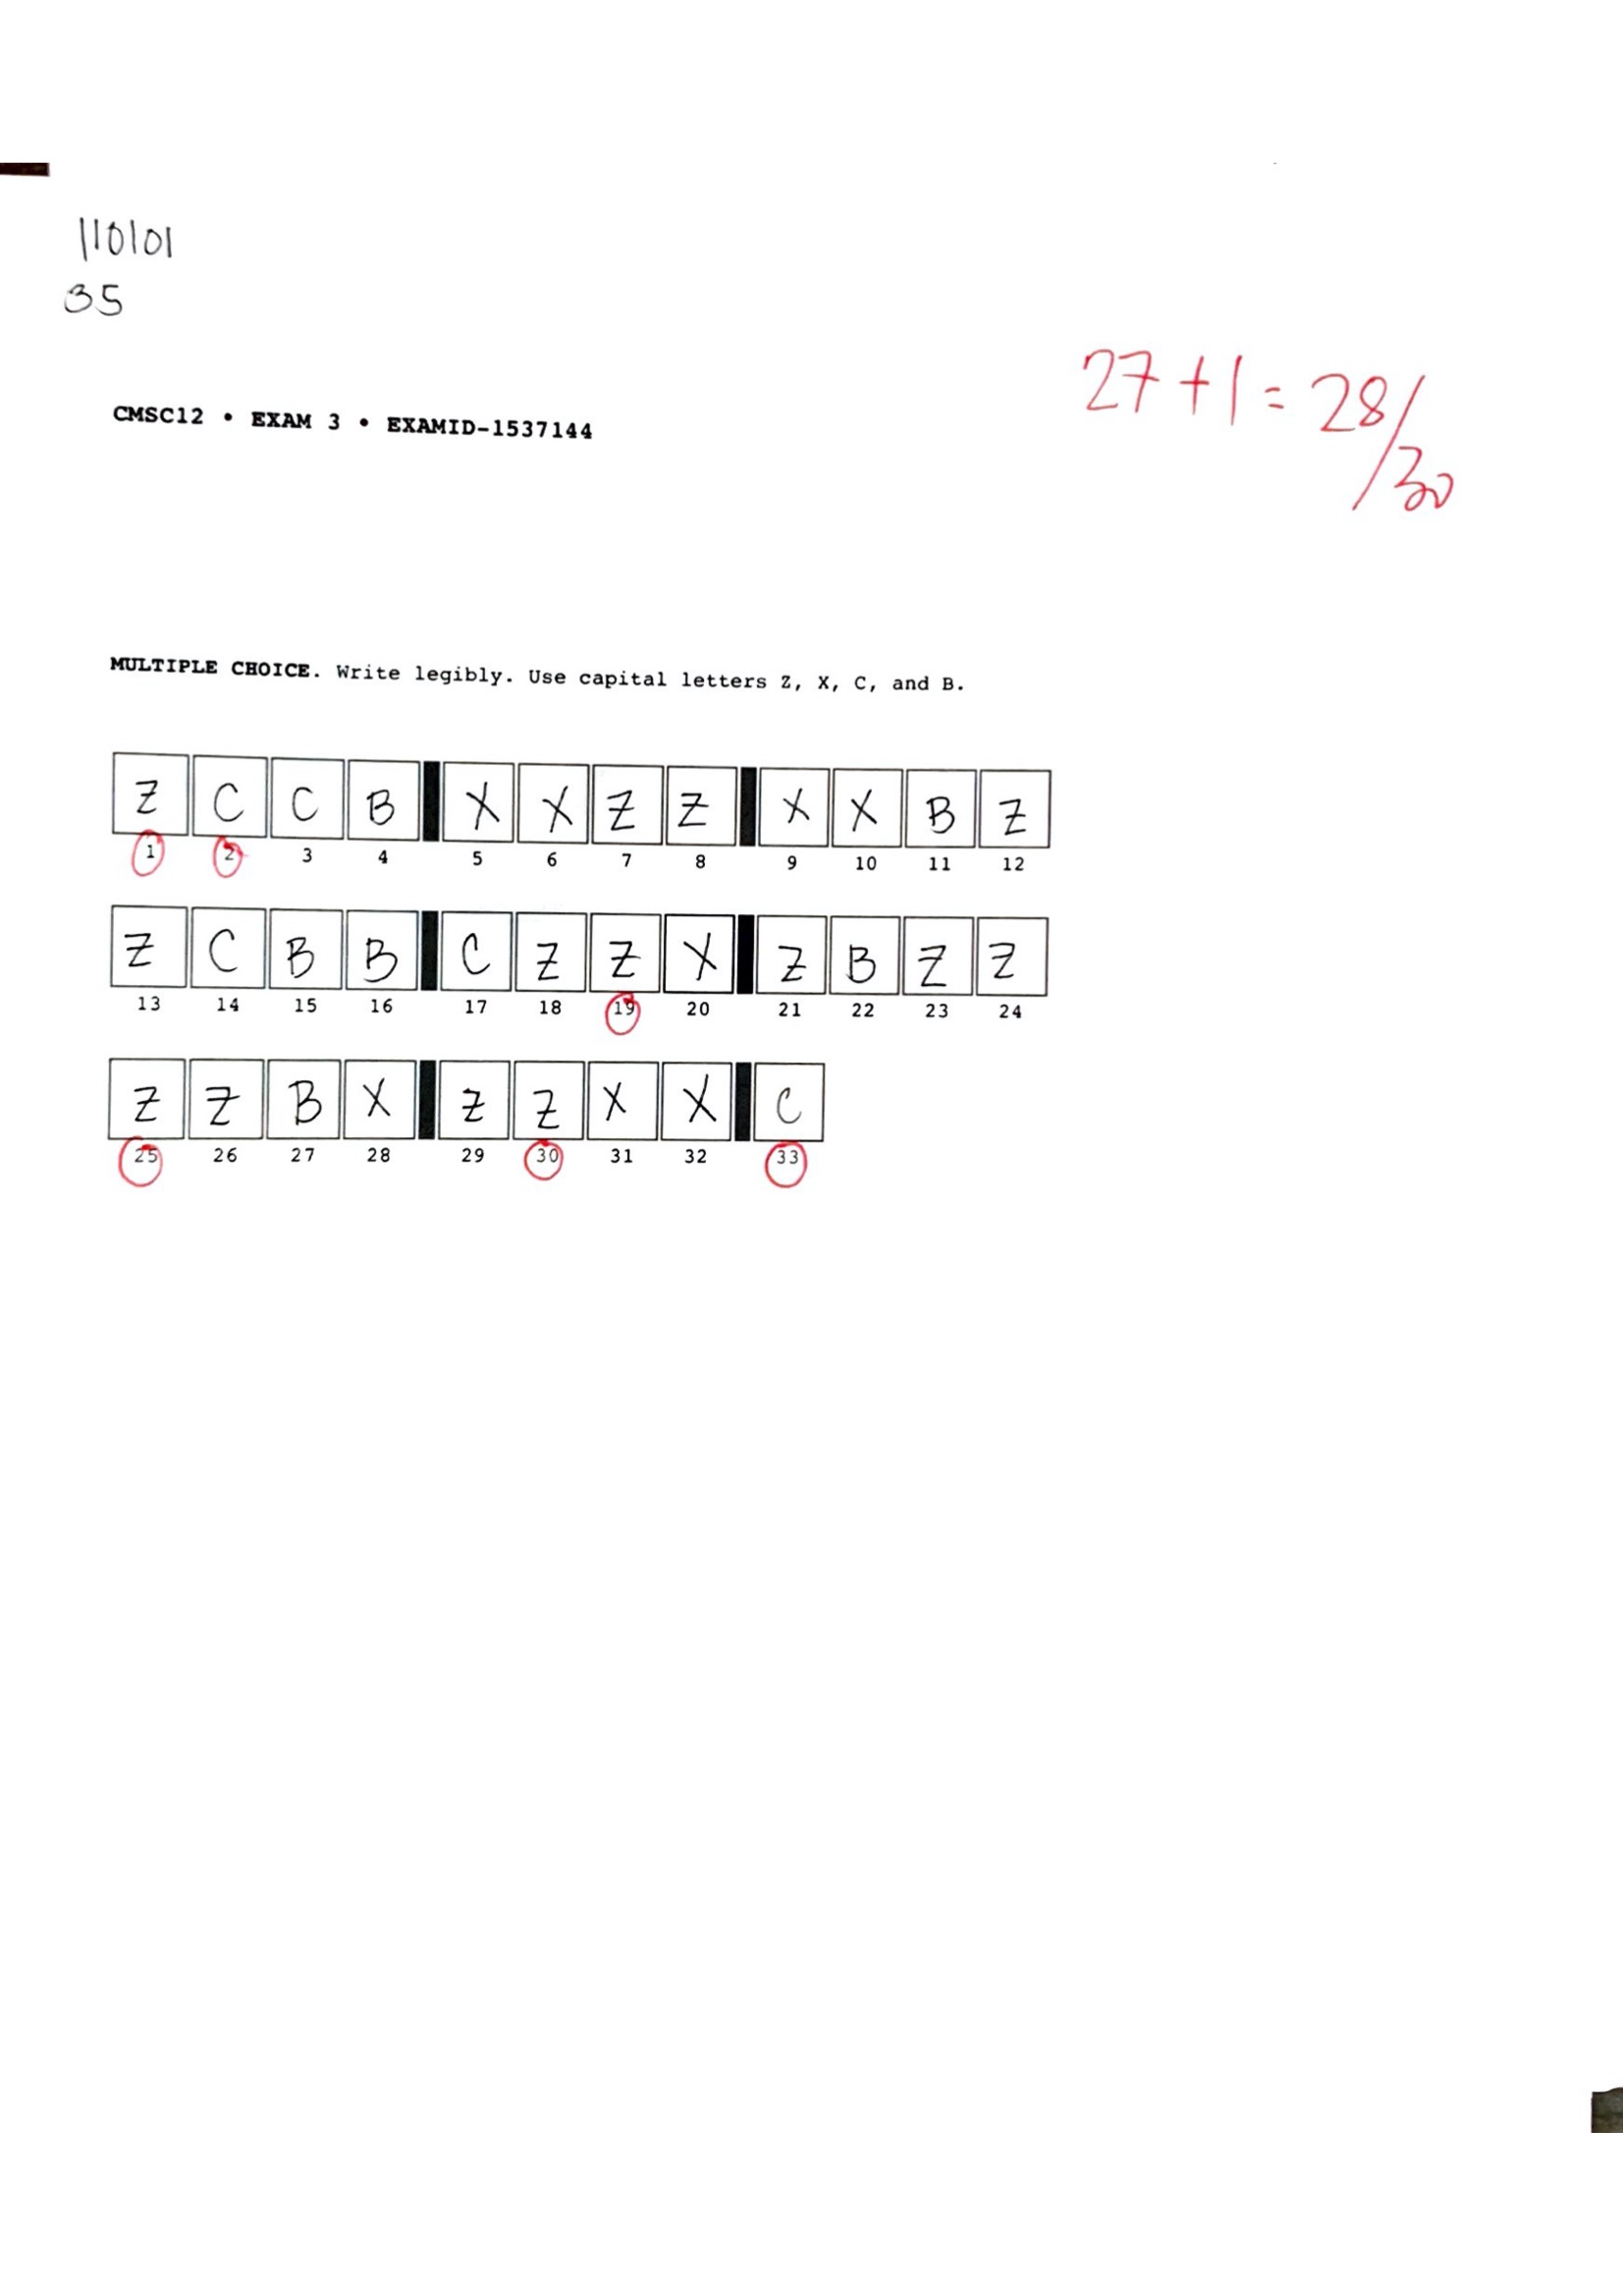 110101
35
27+1=28/30
CMSC12 • EXAM 3 • EXAMID-1537144
MULTIPLE CHOICE. Write legibly. Use capital letters Z, X, C, and B.
Z C C B X X Z Z X X B Z
1 2 3 4 5 6 7 8 9 10 11 12
Z C B B C Z Z X Z B Z Z
13 14 15 16 17 18 19 20 21 22 23 24
Z Z B X Z Z X X C
25 26 27 28 29 30 31 32 33